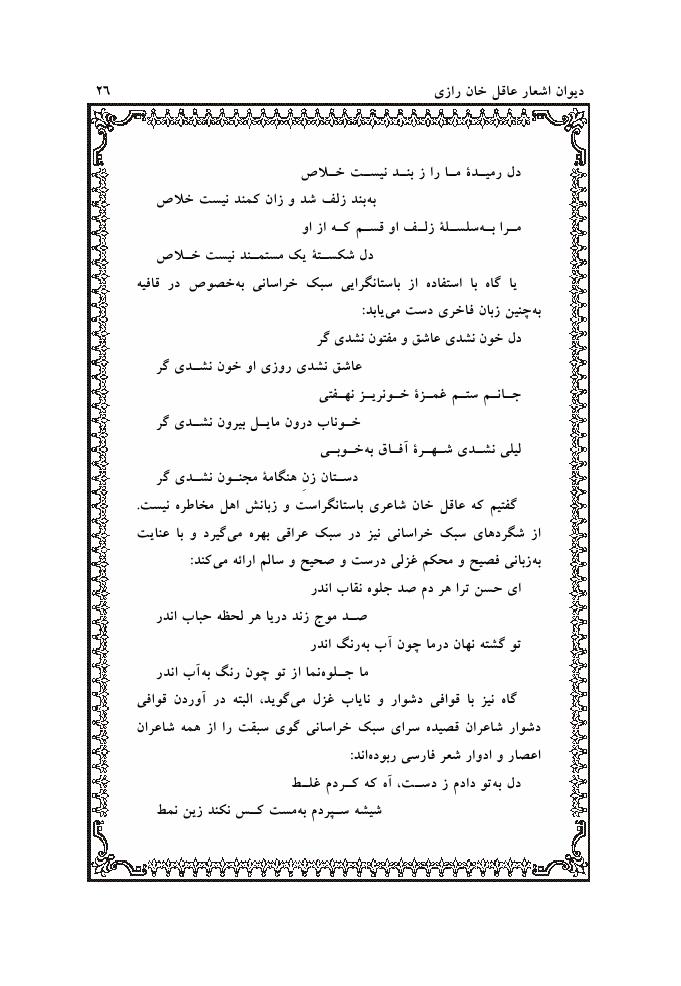 دیوان اشعار عاقل خان رازی ۲۶
دل رمیدهٔ ما را ز بند نیست خلاص
به‌بند زلف شد و زان کمند نیست خلاص
مرا به‌سلسلهٔ زلف او قسم که از او
دل شکستهٔ یک مستمند نیست خلاص
یا گاه با استفاده از باستانگرایی سبک خراسانی به‌خصوص در قافیه
به‌چنین زبان فاخری دست می‌یابد:
دل خون نشدی عاشق و مفتون نشدی گر
عاشق نشدی روزی او خون نشدی گر
جانم ستم غمزهٔ خونریز نهفتی
خوناب درون مایل بیرون نشدی گر
لیلی نشدی شهرهٔ آفاق به‌خوبی
دستان زنِ هنگامهٔ مجنون نشدی گر
گفتیم که عاقل خان شاعری باستانگراست و زبانش اهل مخاطره نیست.
از شگردهای سبک خراسانی نیز در سبک عراقی بهره می‌گیرد و با عنایت
به‌زبانی فصیح و محکم غزلی درست و صحیح و سالم ارائه می‌کند:
ای حسن ترا هر دم صد جلوه نقاب اندر
صد موج زند دریا هر لحظه حباب اندر
تو گشته نهان درما چون آب به‌رنگ اندر
ما جلوه‌نما از تو چون رنگ به‌آب اندر
گاه نیز با قوافی دشوار و نایاب غزل می‌گوید، البته در آوردن قوافی
دشوار شاعران قصیده سرای سبک خراسانی گوی سبقت را از همه شاعران
اعصار و ادوار شعر فارسی ربوده‌اند:
دل به‌تو دادم ز دست، آه که کردم غلط
شیشه سپردم به‌مست کس نکند زین نمط